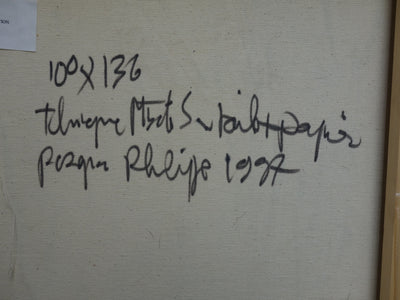 100X136
technique Mixte Sur toile+papier
Pasqua Philippe 1997